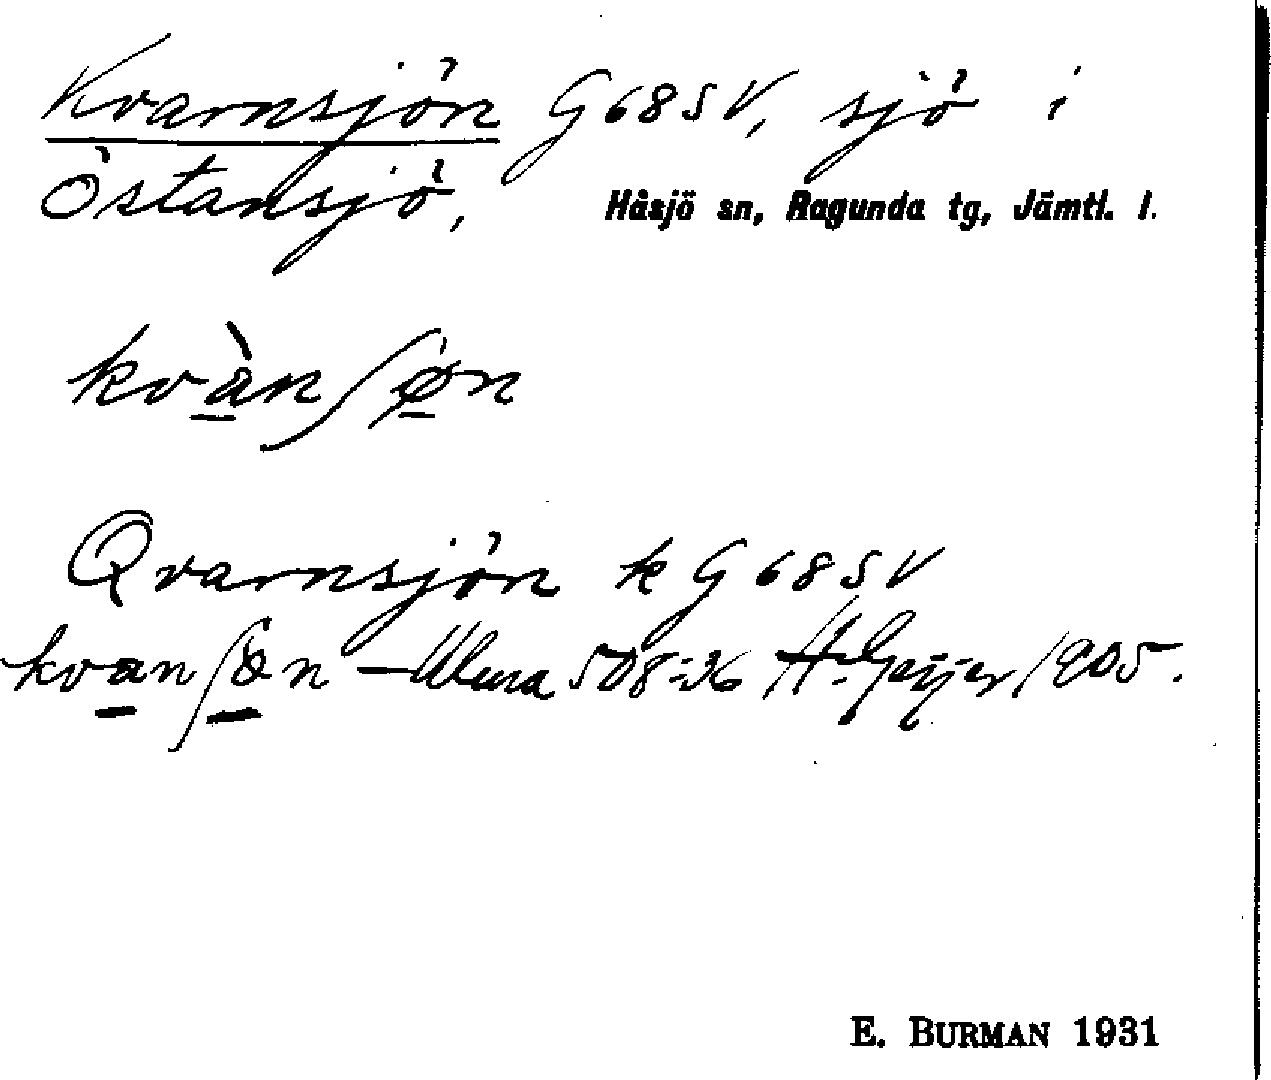 Kvarnsjön G 68 SV, sjö i
Östansjö, Håsjö sn, Ragunda tg, Jämtl. l.
kvànʃøn
Qvarnsjön k G 68 SV
kvanʃøn – Ulma 508:36 H. Geijer 1905.
E. BURMAN 1931